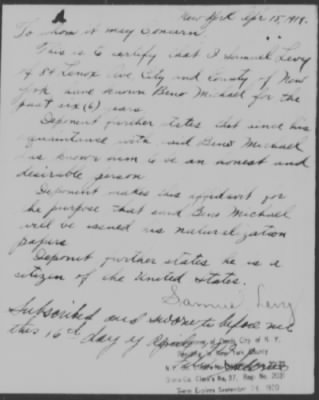 New York Apr 15, 1919.
To whom it may concern.
This is to certify that I Samuel Levy
of 84 Lenox Ave City and County of New
York have known Beno Michael for the
past six (6) years.
Deponent further states that since his
acquaintance with said Beno Michael
has known him to be an honest and
desirable person
Deponent makes this affidavit for
the purpose that said Beno Michael
will be issued his naturalization
papers
Deponent further states he is a
citizen of the United States.
Samuel Levy
Subscribed and sworn to before me
this 16th day of
of Deeds, City of N. Y.
New York County
N.Y. Co. Clerk's No. 37, Reg. No. 20
Term Expires September 24, 1920